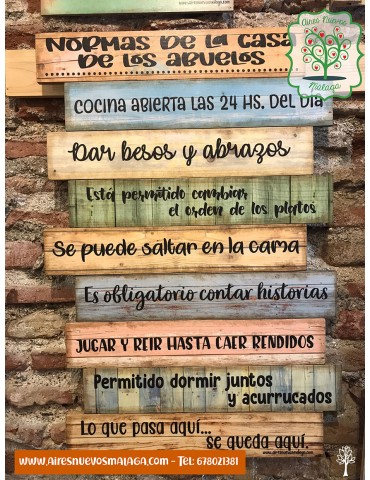 www.airesnuevosmalaga.com
Aires Nuevos
Málaga
NORMAS DE LA CASA
DE LOS ABUELOS
COCINA ABIERTA LAS 24 HS. DEL DÍA
Dar besos y abrazos
Está permitido cambiar
el orden de los platos
Se puede saltar en la cama
Es obligatorio contar historias
JUGAR Y REIR HASTA CAER RENDIDOS
Permitido dormir juntos
y acurrucados
Lo que pasa aquí...
se queda aquí.
www.airesnuevosmalaga.com - Tel: 678021381